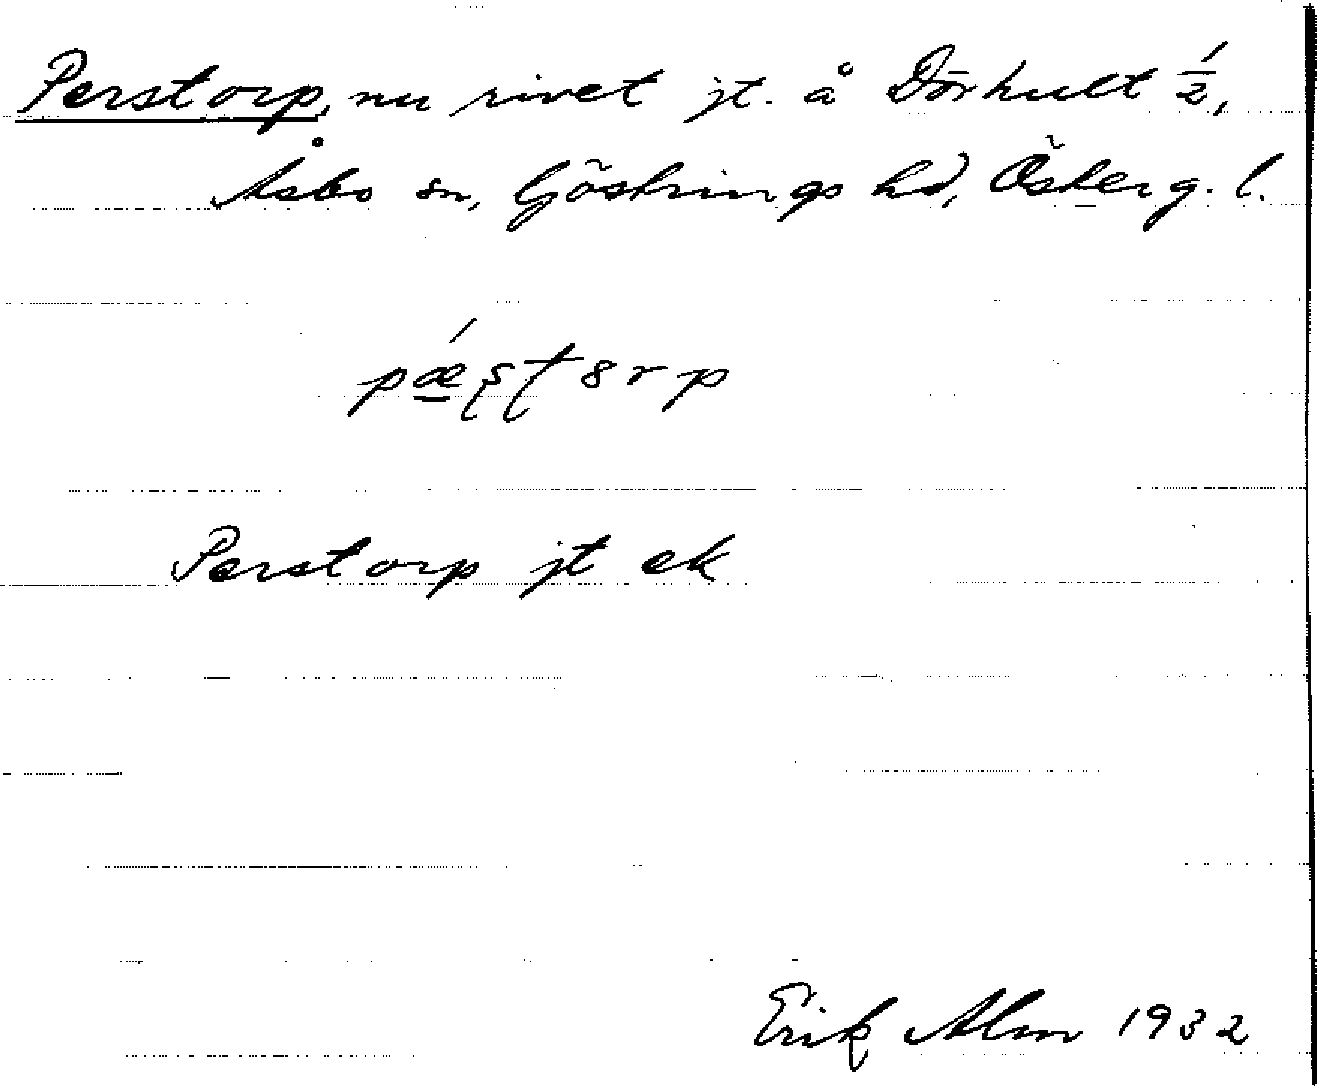 Perstorp, nu rivet jt. å Dörhult 1/2,
Åsbo sn, Göstrings hd, Österg. l.
pǽʂʈ8rp
Perstorp jt ek
Erik Alm 1932